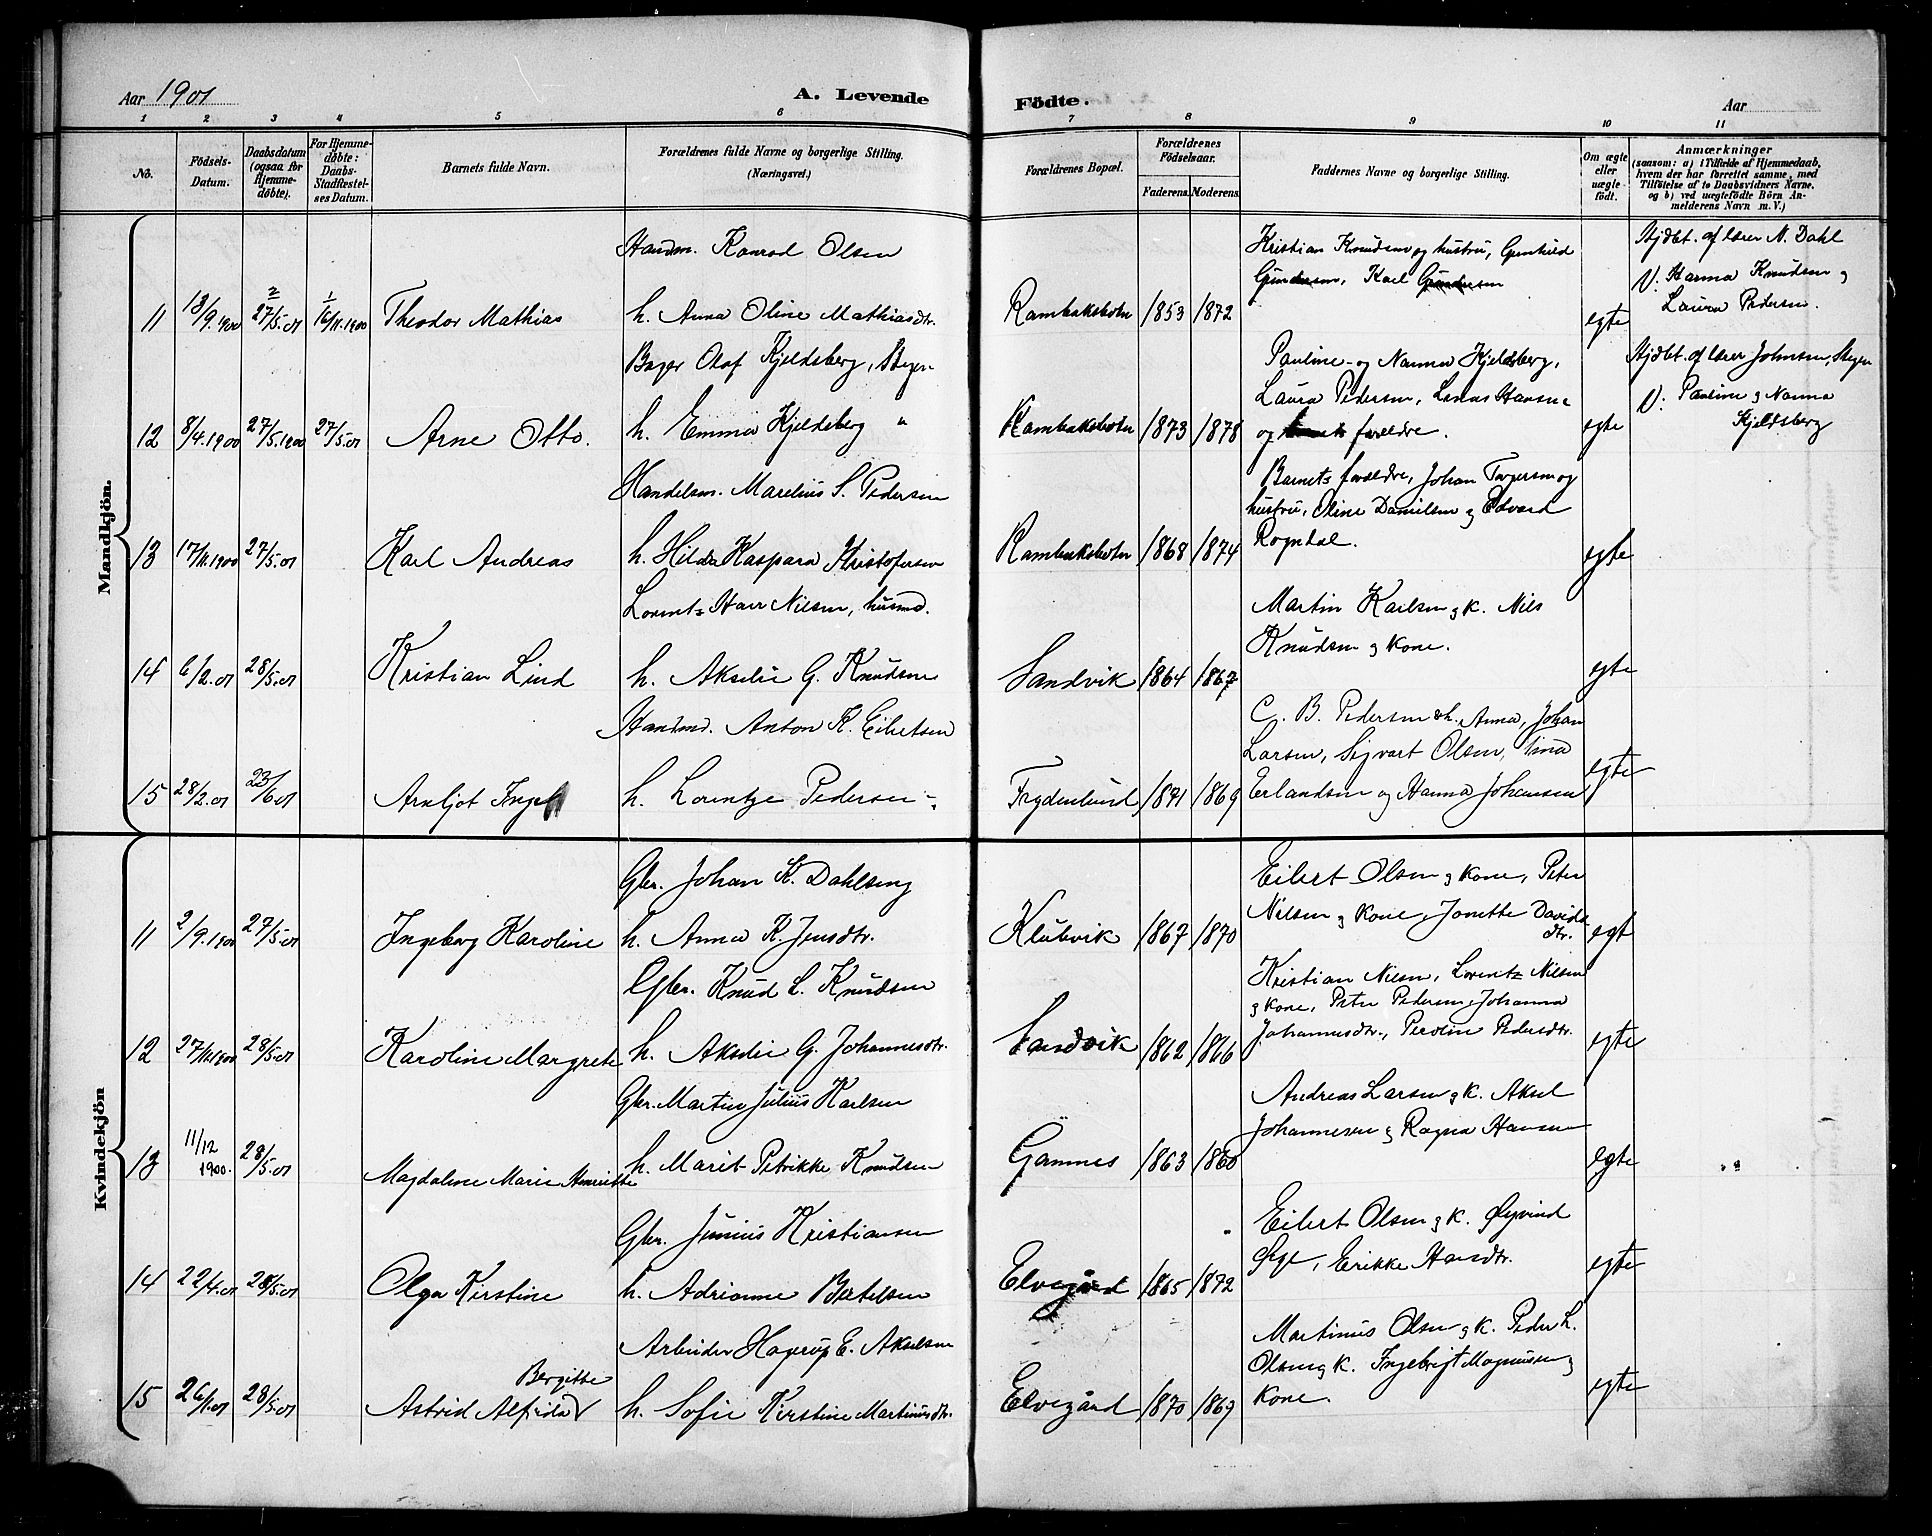 Aar 1901
A. Levende
Födte.
Aar
1 2 3 4 5 6 7 8 9 10 11
No.
Födsels-Datum.
Daabsdatum (ogsaa for Hjemmedöbte).
For Hjemmedöbte: Daabs-Stadfæstelses Datum.
Barnets fulde Navn.
Forældrenes fulde Navne og borgerlige Stilling. (Næringsvei.)
Forældrenes Bopæl.
Forældrenes Födselsaar.
Faderens. Moderens.
Faddernes Navne og borgerlige Stilling.
Om ægte eller uægte födt.
Anmærkninger
(saasom: a) i Tilfælde af Hjemmedaab, hvem der har forrettet samme, med Tilföielse af to Daabsvidners Navne, og b) ved uægtefödte Börn Anmelderens Navn m. V.)
Mandkjön.
Handm. Konrad Olsen
Kristian Knudsen og hustru, Gunhild
Gundersen, Karl Gundersen
Hjdbt. af lærer N. Dahl
V. Hanna Knudsen og
Laura Pedersen.
11 13/9.900 27/5.01 1/11.1900 Theodor Mathias h. Anna Oline Mathiasdtr. Rambaksbotn 1853 1872 egte
Bager Olaf Kjeldsberg, Stegen
Pauline og Nanna Kjeldsberg,
Laura Pedersen, Linus Hansen
Hjdbt. af lærer Johnsen, Stegen
V. Pauline og Nanna
Kjeldsberg
12 8/4.1900 27/5.1900 27/5.01 Arne Otto. h. Emma Kjeldsberg " Rambaksbotn 1873 1878 og forældre. egte
Handelsm. Marelius S. Pedersen
Barnets forældre, Johan Torgersen og
hustru, Oline Danielsen og Edvard
13 17/11.1900 27/5.01 Karl Andreas h. Hilda Kaspara Kristofersen Rambaksbotn 1868 1874 Rogndal. egte
Lorentz Harr Nilsen, husmd.
Martin Karlsen og k. Nils
Knudsen og kone.
14 6/2.01 28/5.01 Kristian Lind h. Akselie G. Knudsen Sandvik 1864 1867 egte
Handmd. Anton K. Eilertsen
C. B. Pedersen & h. Anna, Johan
Larsen, Sigvart Olsen, Tina
15 28/2.01 23/6.01 Arnljot Ingel h. Lorentze Pedersen Frydenlund 1871 1869 Erlandsen og Hanna Johansen egte
Kvindekjön
Gbr. Johan K. Dahlseng
Eilert Olsen og kone, Peter
Nilsen og kone, Jonette Davids
dtr.
11 2/9.1900 27/5.01 Ingeborg Karoline h. Anna K. Jensdtr. Klubvik 1867 1870 egt
Gbr. Knud L. Knudsen
Kristian Nilsen, Lorentz Nilsen
og kone, Peter Pedersen, Johanna
Johannesdtr., Peroline Pedersdtr.
12 27/11.1900 28/5.01 Karoline Margrete h. Akselie G. Johannesdtr. Sandvik 1862 1866 egte
Gbr. Martin Julius Karlsen
Andreas Larsen og k. Aksel
Johannesen og Ragna Hansen
13 11/12 1900. 28/5.01 Magdalene Marie Henriette h. Marit Petrikke Knudsen Gamnes 1863 1860 egte
Gbr. Junius Kristiansen
Eilert Olsen og k. Øyvind
Sge, Erikke Hansdtr.
14 22/4.01 28/5.01 Olga Kirstine h. Adrianne Bertelsen Elvegård 1865 1872 egte
Arbeider Hagerup E. Akselsen
Martinus Olsen og k. Peder L.
Olsen og k. Ingebrigt Magnussen og
kone.
Bergitte
15 26/1.01 28/5.01 Astrid Alfrida h. Sofie Kirstine Martinusdtr. Elvegård 1870 1869 egte